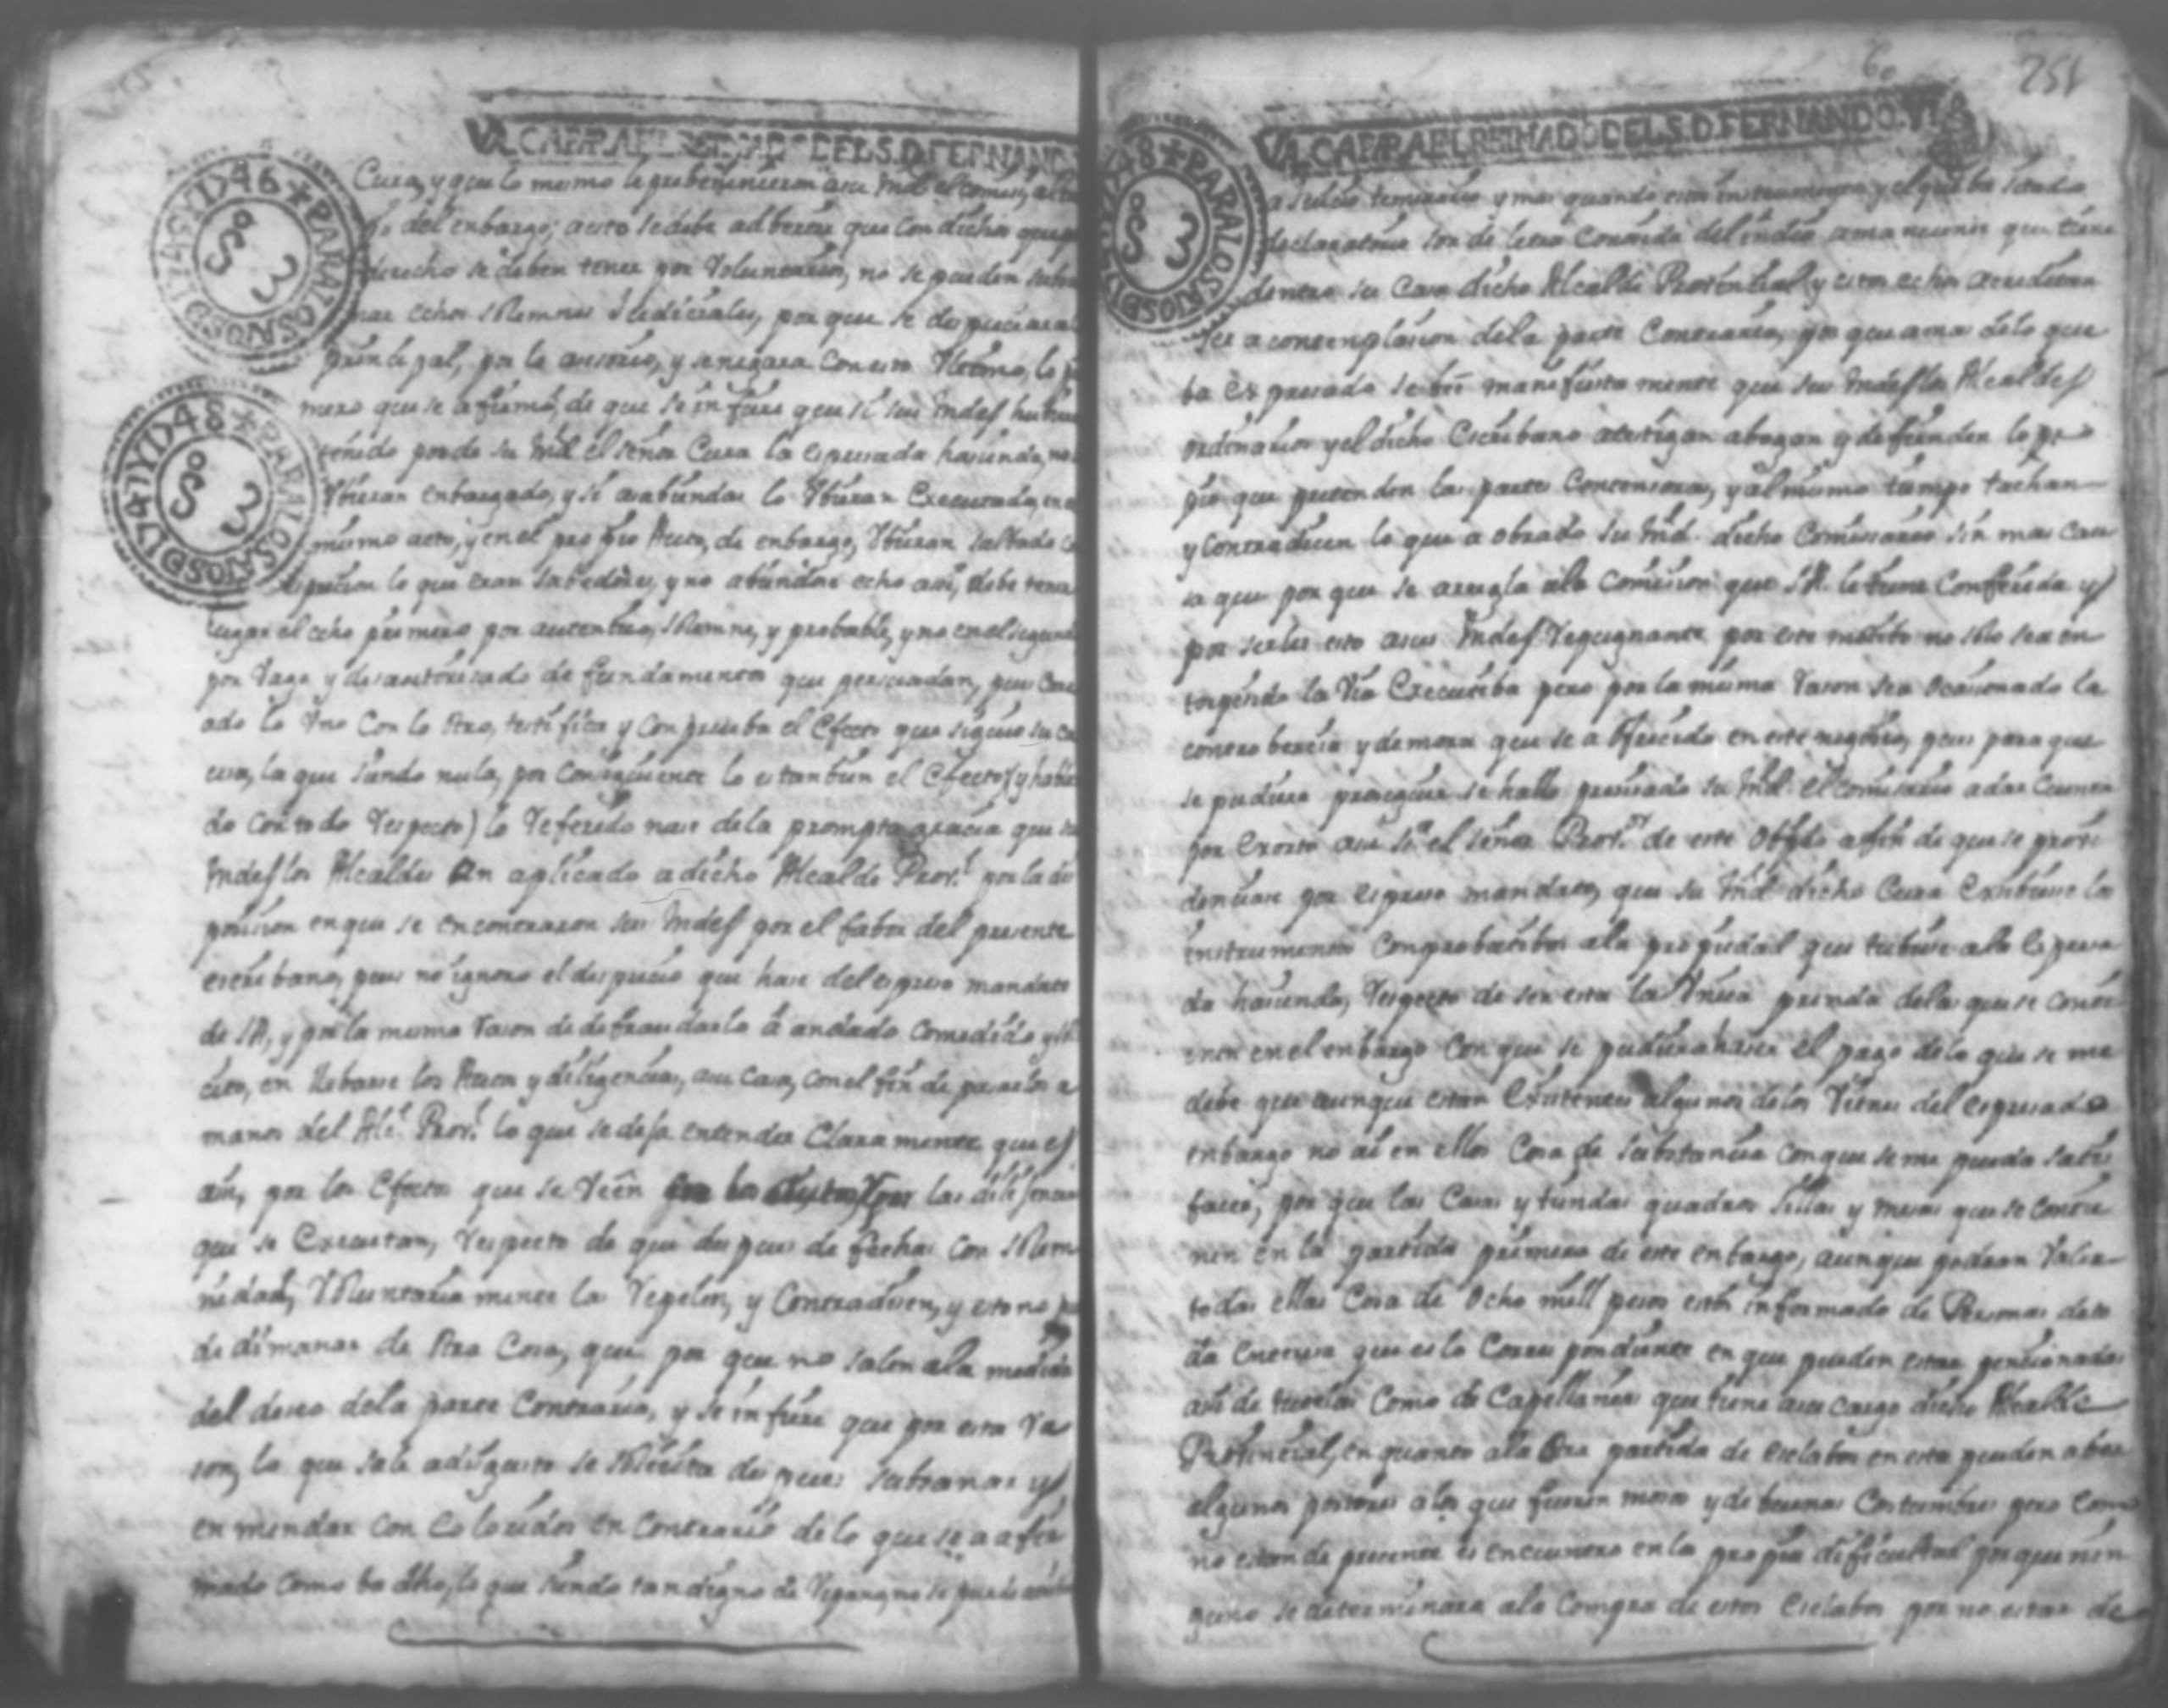 VALGA PARA EL REINADO DEL S. D. FERNANDO
Cura, y que lo mismo le prebeninieron asu Md el comis.
del enbargo; aesto sedebe adbertir que con dichas
derecho se deben tener por Voluntarios, no se pueden
nar echos solemnes Judiciales, por que se despreciara
prinsipal, por lo acsesorio, y senegara con esto Vltimo, lo
mero que se afirmó, de que se infiere que si sus Mdes hubieran
tenido por de su Md el señor Cura la espresada hasienda, no
Vbieran enbargado, y si arabundas lo Vbieran Executado, en el
mismo acto, y en el propio Auto, de enbargo, Vbieran salbado
lo que eran sabedores, y no abiendose echo asi, debe tener
lugar el echo primero por autentico, solemne, y probable, y no en el segundo
por Vago y desautorisado de fundamentos que persuadan, pues
ado lo Vno con lo otro, testifica y conprueba el efecto que siguio su
cusa, la que siendo nula, por consiguiente lo es tanbien el efecto (y hablan
do con todo Respecto) lo Referido nase dela prompta grasia que sus
Mdes los Alcaldes an aplicado a dicho Alcalde Prov.l por la dis
posision en que se encontraron sus Mdes por el fabor del presente
escribano, pues no ignoro el despresio que hase del espreso mandato
de SA, y por la misma rason de defraudarlo á andado comedido y
sito, en llebarse los Autos y diligencias, asu casa, con el fin de pasarlos a
manos del Alc.e Prov.l lo que se deja entender claramente que es
asi, por los efectos que se Veên por las diligencias
que se executan, Respecto de que despues de fechas con solem
nidad, Voluntariamente las Repelen, y contradisen, y esto no pue
de dimanar de otra cosa, que por que no salen ala medida
del deseo dela parte contraria, y se infiere que por esta Ra
son, lo que sale adisgusto se solisita despues subsanar y
enmendar con coloridos en contrario de lo que se a afir
mado como ba dho, lo que siendo tan digno de Reparo, no se puede
60
251
VALGA PARA EL REINADO DEL S. D. FERNANDO VI
a Juicio temerario y mas quando este instrumento y el que ba sitado
declaratoria son de letra conosida del indio amanuense que tiene
dentro su casa dicho Alcalde Provinsial y estos echos acreditan
ser a contemplasion dela parte contraria, por que amas delo que
ba espresado se beê manifiestamente que sus Mdes los Alcaldes
ordinarios y el dicho Escribano atestigan abogan y defienden lo pro
pio que pretenden las partes contensoras, y al mismo tiempo tachan
y contradisen lo que a obrado su Md. dicho Comisario sin mas cau
sa que por que se arregla ala comision que SA. le tiene conferida y
por serles esto asus Mdes Repugnante por este motibo no solo sea en
torpesido la Via Executiba pero por la misma rason sea ocasionado la
contro bersia y demora que se a ofresido en este negosio, pues para que
se pudiera proseguir se hallo presisado su Md. el comisario adar cuenta
por exorto asu S.a el señor Prov.or de este Obpdo afin de que se provi
densiase por espreso mandato, que su Md dicho Cura exsibiese los
instrumentos comprobatibos ala propiedad que tubiese ala espresa
da hasienda, Respecto de ser esta la Vnica prenda delas que se conti
enen en el enbargo con que se pudiera haser el pago delo que se me
debe que aunque estan existentes algunos delos Vienes del espresado
enbargo no aî en ellos cosa de substansia con que se me pueda satis
faser, por que las casas y tiendas quadros sillas y mesas que se contie
nen en la partida primera de este enbargo, aunque podran Valer
todas ellas cosa de ocho mill pesos estôi informado de Personas de to
da enteresa que es lo correspondiente en que pueden estar pensionadas
asi de tutelas como de Capellanias que tiene asu cargo dicho Alcalde
Provinsial, en quanto ala otra partida de esclabos en esta pueden aber
algunos postores alos que fueren mosos y de buenas costumbres pero como
no estan de presente se encuentro en la propia dificultad por que nin
guno se determinara ala compra de estos esclabos por no estar de